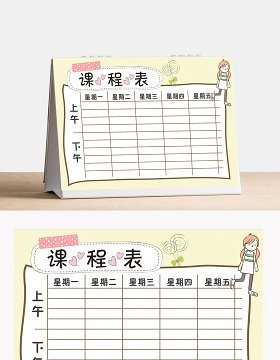 课程表
星期一 星期二 星期三 星期四 星期五
上午
下午
课程表
星期一 星期二 星期三 星期四 星期五
上午
下午